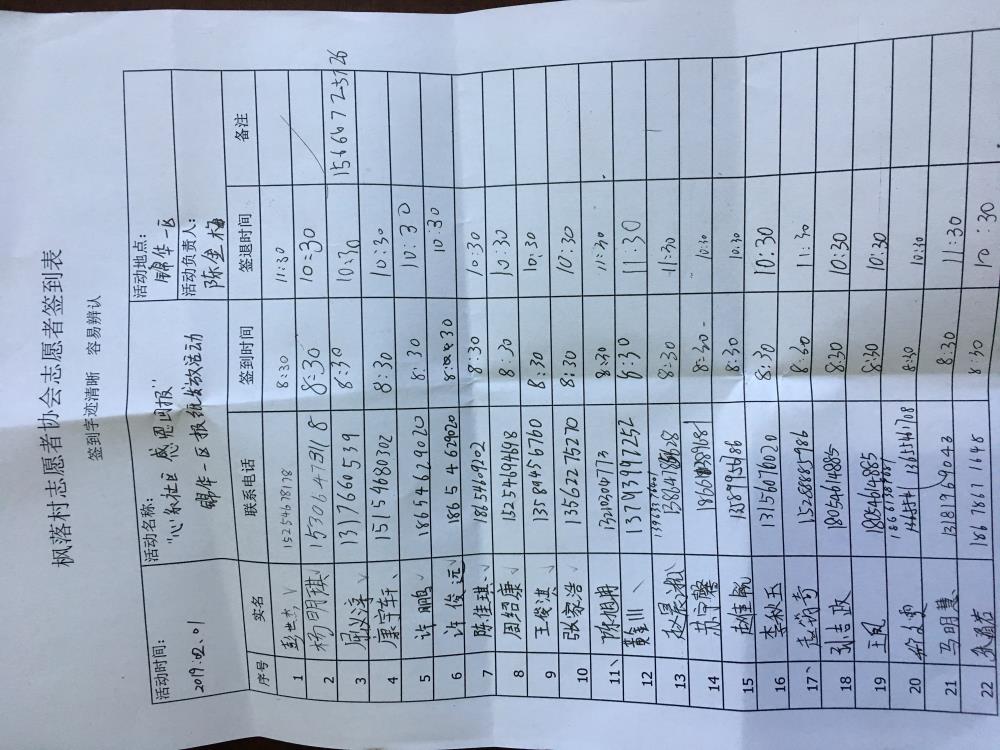 枫落村志愿者协会志愿者签到表
签到字迹清晰 容易辨认
活动时间: 活动名称: 活动地点:
2019.02.01 "心系社区 感恩回报" 锦华一区
锦华一区报纸发放活动 活动负责人: 陈金梅
序号 实名 联系电话 签到时间 签退时间 备注
1 彭世杰 √ 15254678178 8:30 11:30
2 杨明琪 √ 15306473118 8:30 10:30
3 √ 13176660539 8:30 10:30 15666725726
4 康宇轩、 15154680302 8:30 10:30
5 许鹏 √ 18654629020 8:30 10:30
6 许俊远 √ 18654629020 8:30 10:30
7 陈佳琪、 1865469202 8:30 10:30
8 周绍康 √ 15254694698 8:30 10:30
9 王俊淇 √ 13589456760 8:30 10:30
10 张家浩 √ 13562275270 8:30 10:30
11、 陈旭冉 8:30 11:30
12 黄金川 13793997252 8:30 11:30
13 赵晨淞 8:30 11:30
14 苏宁馨 8:30 10:30
15 8:30 10:30
16 李秋玉 13156010020 8:30 10:30
17、 15288859786 8:30 11:30
18 张吉政 18054614885 8:30 10:30
19 王凤 18054614885 8:30 10:30
20 13655461708 8:30 10:30
21 马明慧 13181969043 8:30 11:30
22 18678671148 8:30 10:30